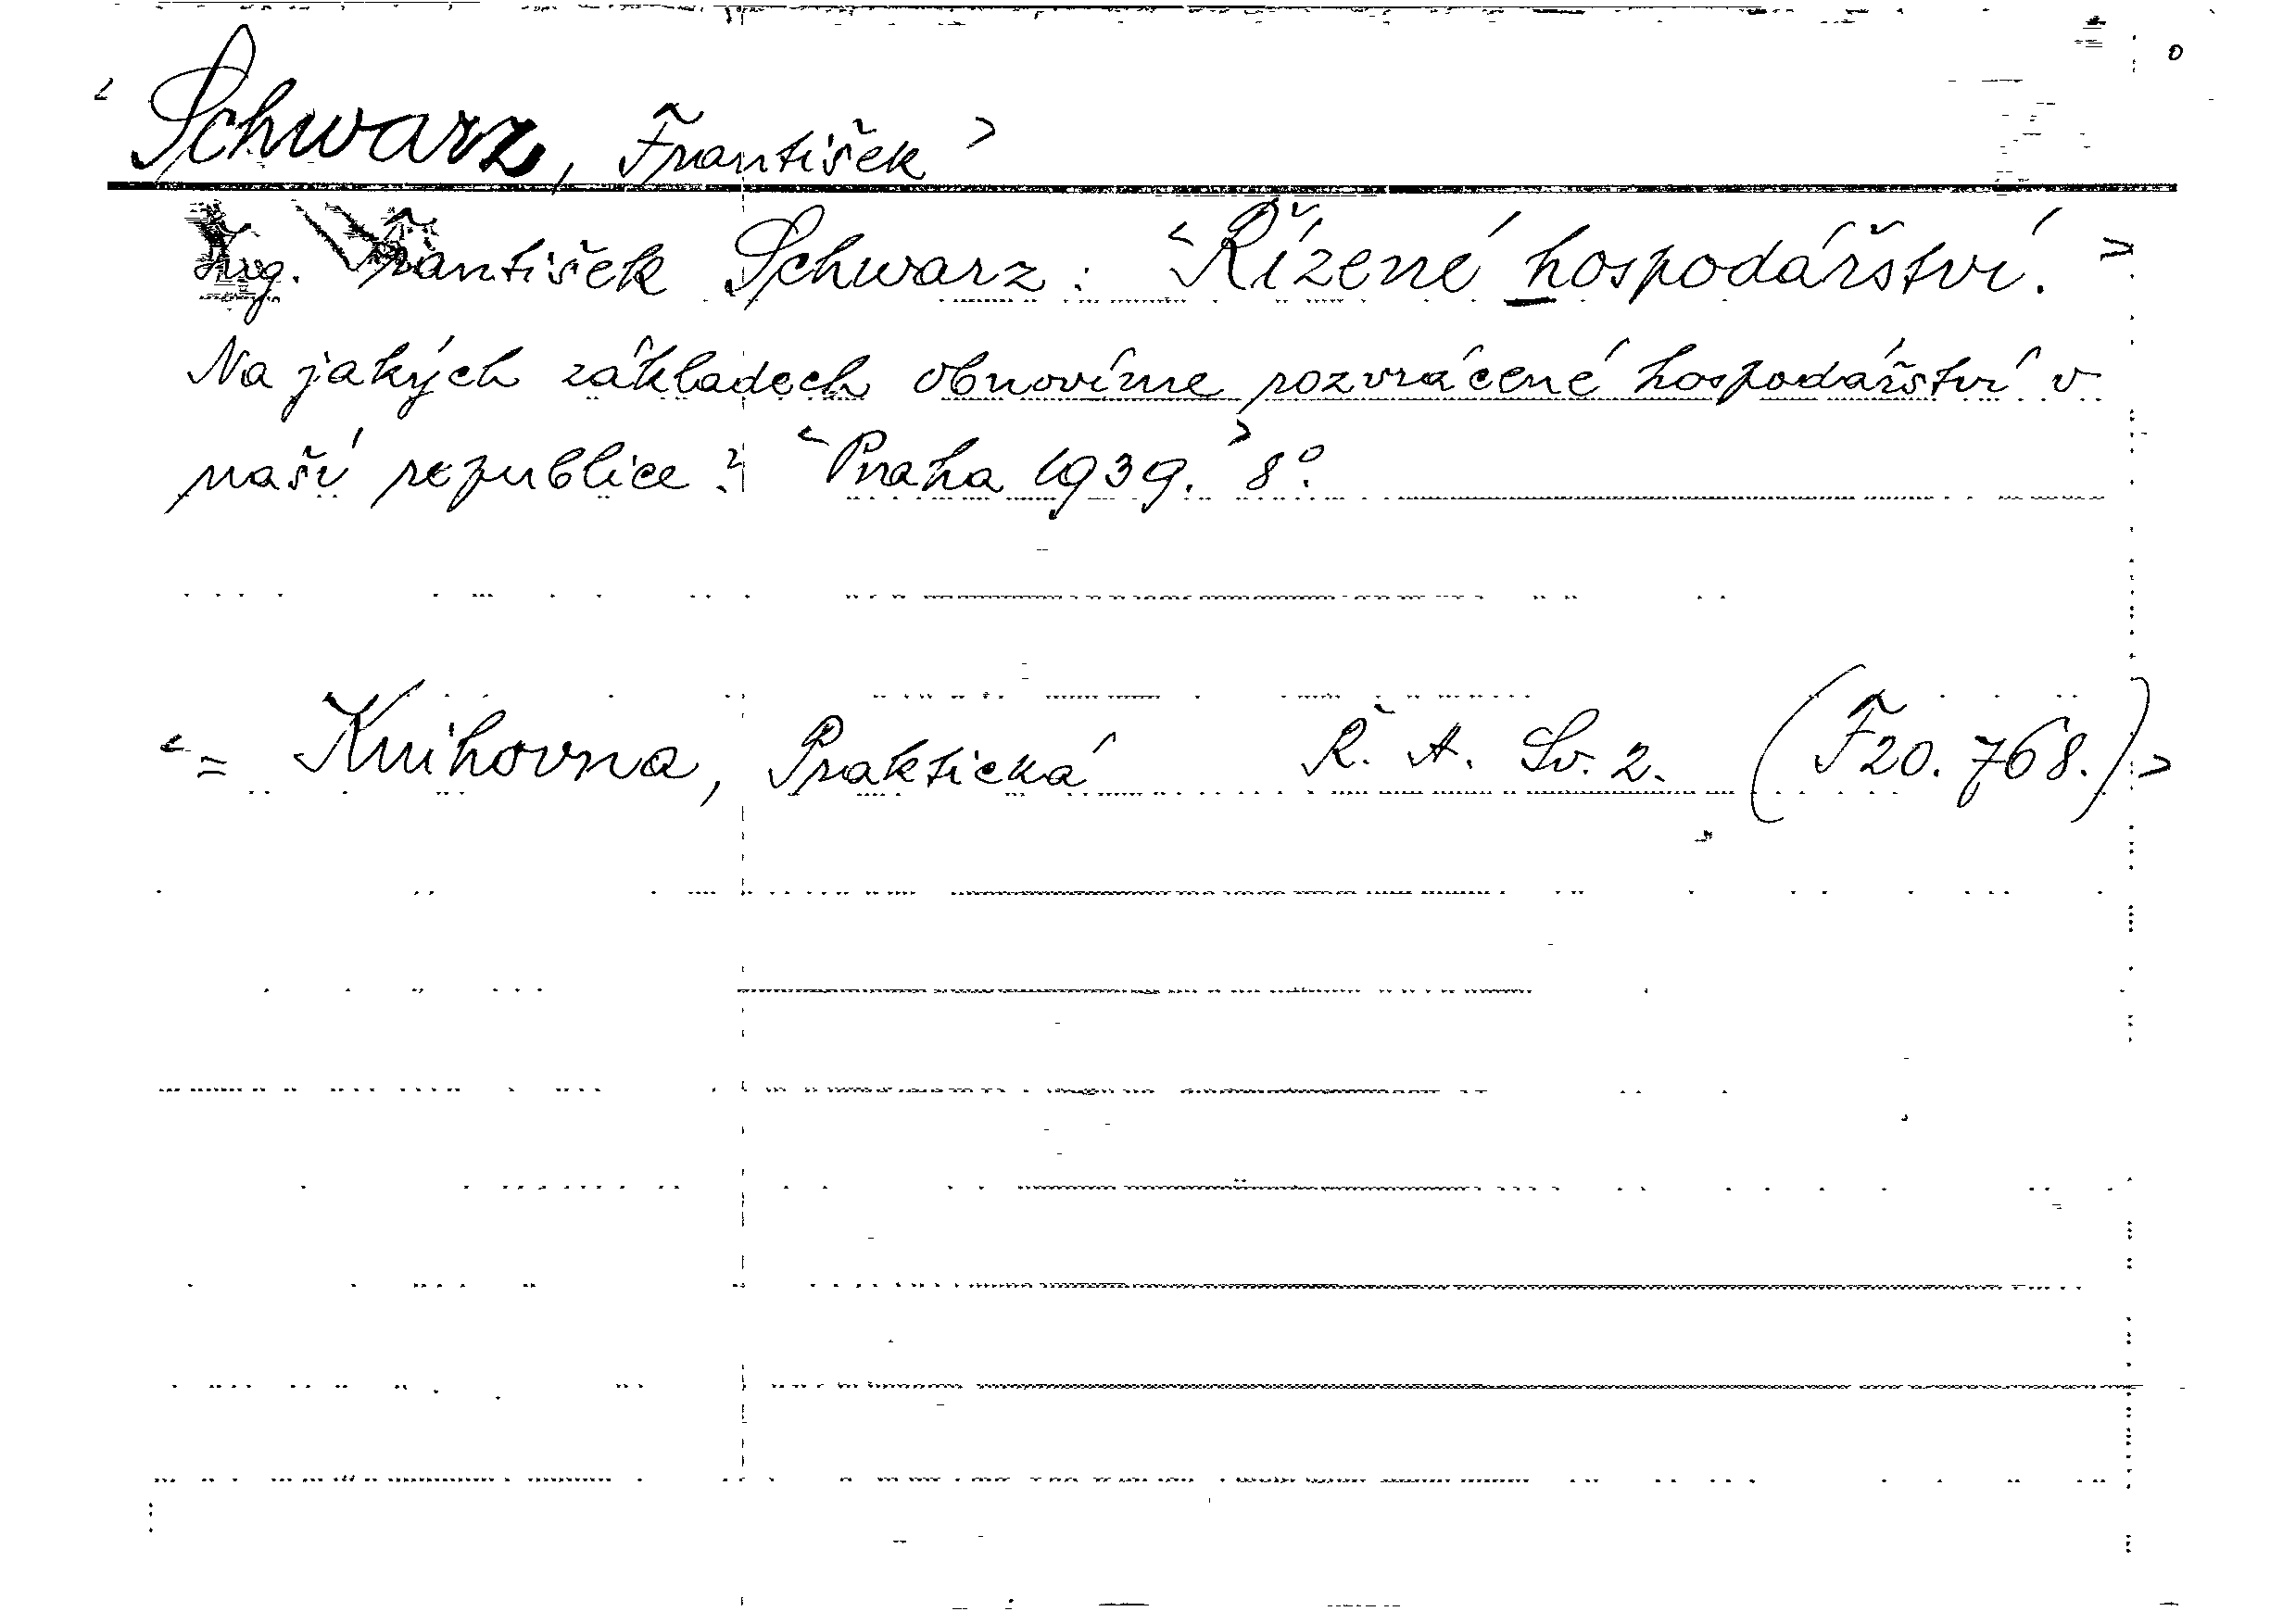 <Schwarz, František>
Ing. František Schwarz: <Řízené hospodářství.>
Na jakých základech obnovíme rozvrácené hospodářství v
naší republice? <Praha 1939.> 8°.
<= Knihovna, Praktická Ř. A. Sv. 2. (F20.768.)>